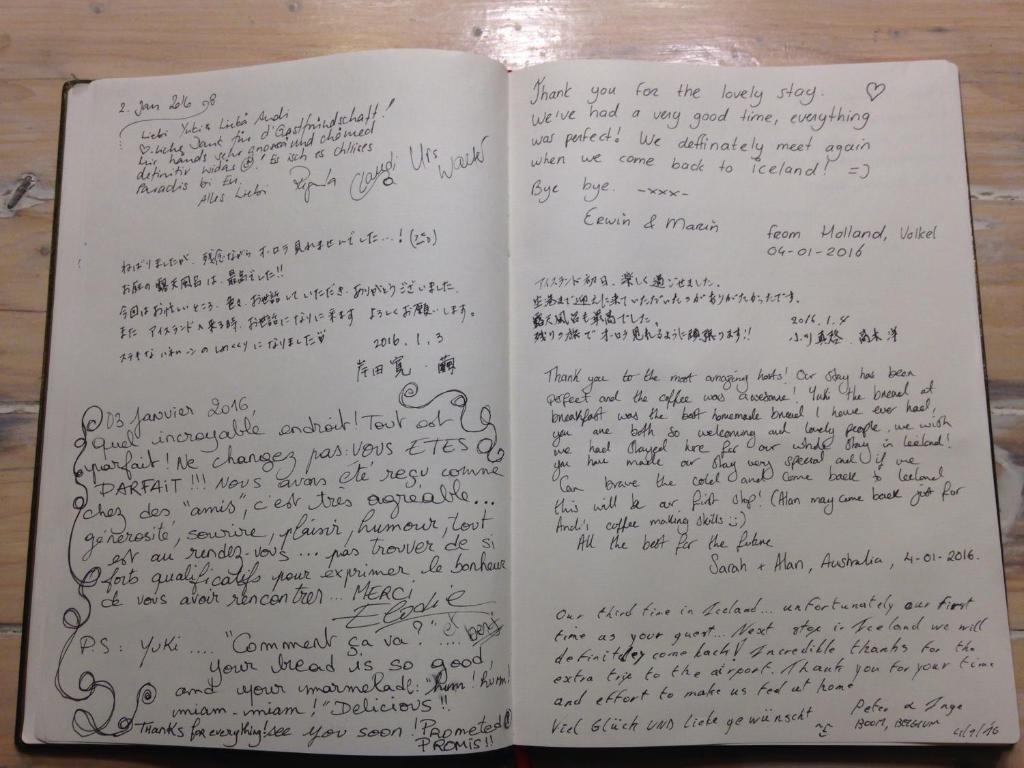 2. Jan 2016
Liebi Yuki & Liebä Andi
Dank für d'Gastfründschaft!
Mir händs sehr gnossä und chömed
definitiv widär! Es isch es chlises
Paradis bi Eu.
Alles Liebi Regula Claudia Urs
ねばりましたが、残念ながらオーロラ見れませんでした…!
お庭の露天風呂は、最高でした!!
今回はお忙しいところ、色々お世話していただき、ありがとうございました。
また アイスランドへ来る時、お世話になりに来ます よろしくお願いします。
ステキな の しめくくりになりました
2016. 1. 3
岸田 寛・繭
03 Janvier 2016,
quel incroyable endroit! Tout est
parfait! Ne changez pas: VOUS ETES
PARFAIT!!! Nous avons été reçu comme
chez des "amis", c'est très agréable...
générosité, sourire, plaisir, humour, tout
est au rendez-vous... pas trouver de si
forts qualificatifs pour exprimer le bonheur
de vous avoir rencontrer... MERCI
Elodie
P.S: Yuki .... "Comment ça va?" et
.... best
your bread is so good,
and your marmelade: "hum! hum!
miam-miam!" Delicious!!
Thanks for everything! see you soon! Prometed
PROMIS!!
Thank you for the lovely stay. ♡
We've had a very good time, everything
was perfect! We deffinately meet again
when we come back to iceland! =)
Bye bye. -xxx-
Erwin &
from Holland, Volkel
04-01-2016
アイスランド初日、楽しく過ごせました。
空港まで迎えに来ていただいたのがありがたかったです。
露天風呂も最高でした。
残りの旅でオーロラ見れるように頑張ります!!
2016. 1. 4
小川真悠・高木洋
Thank you to the most amazing hosts! Our stay has been
perfect and the coffee was awesome! Yuki the bread at
breakfast was the best homemade bread I have ever had,
you are both so welcoming and lovely people. we wish
we had stayed here for our whole stay in Iceland!
you have made our stay very special and if we
can brave the cold and come back to Iceland
this will be our first stop! (Alan may come back just for
Andi's coffee making skills :))
All the best for the future
Sarah + Alan, Australia, 4-01-2016.
Our third time in Iceland... unfortunately our first
time as your guest... Next stop in Iceland we will
definitely come back! Incredible thanks for the
extra trip to the airport. Thank you for your time
and effort to make us feel at home
Viel Glück UND Liebe gewünscht
Peter & Inge
BOOM, BELGIUM
4/1/16